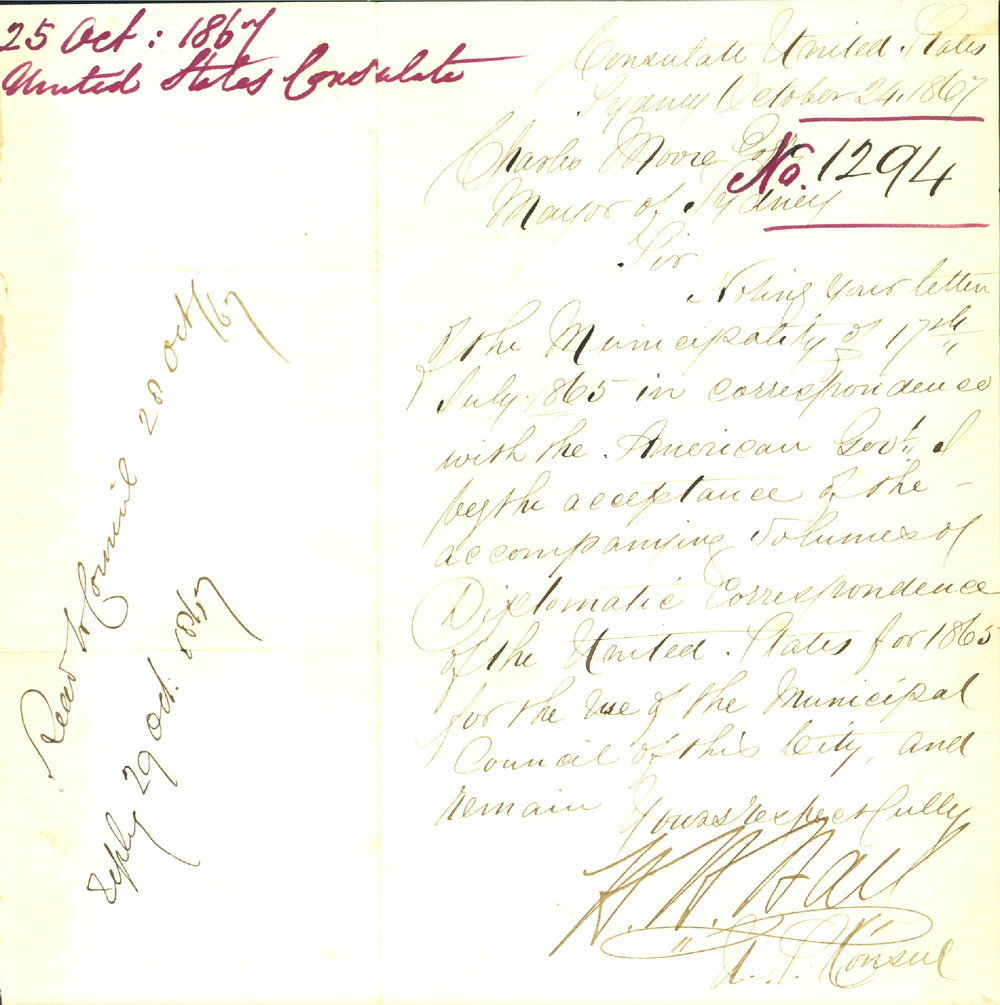 25 Oct: 1867
United States Consulate
Consulate United States
Sydney October 24. 1867
No. 1294
Charles Moore Esqr
Mayor of Sydney
Sir
Noting your letter
of the Municipality of 17th
July 1865 in correspondence
with the American Govt. I
beg the acceptance of the -
accompanying Volumes of
Diplomatic Correspondence
of the United States for 1865
for the use of the Municipal
Council of this City, and
remain
Yours respectfully
H. H. Hall
U. S. Consul
Read to Council 28 Oct/67
Reply 29 Oct. 1867